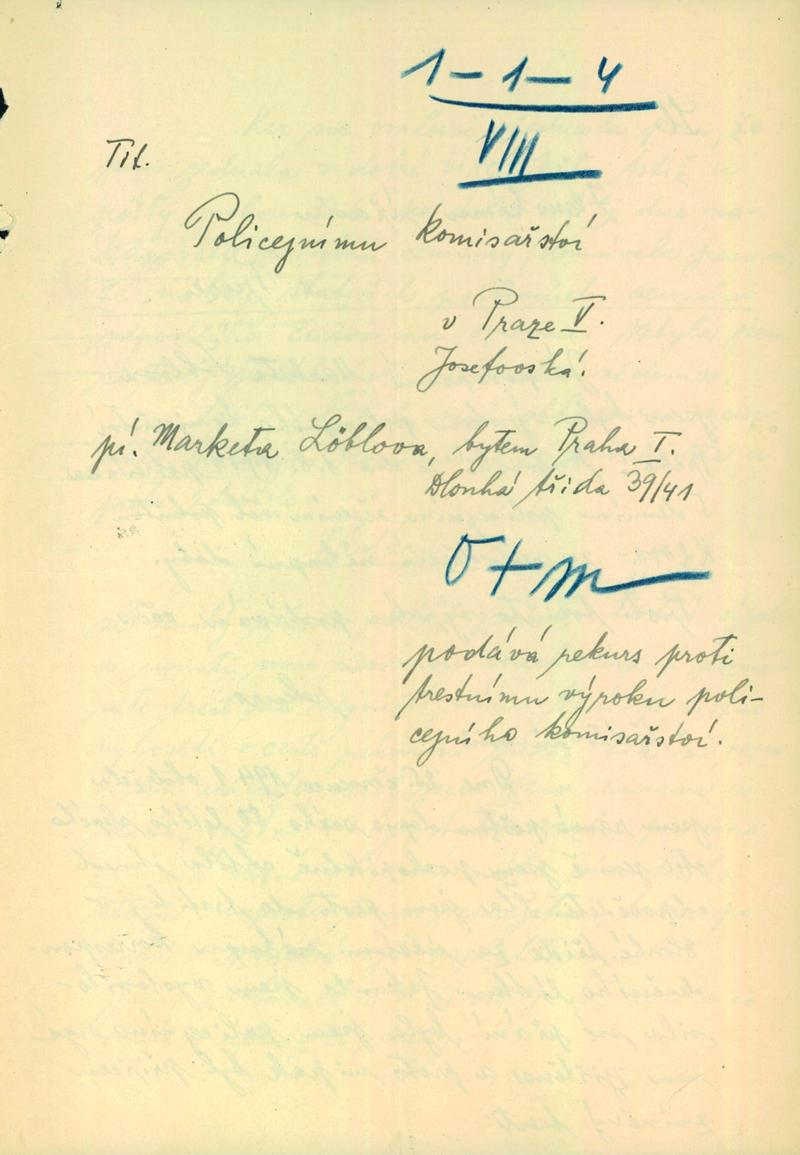 1-1-4
VIII
Tit.
Policejnímu komisařství
v Praze V.
Josefovská.
pí. Marketa Löblova, bytem Praha I.
Dlouhá třída 39/41
podává rekurs proti
trestnímu výroku poli-
cejního komisařství.